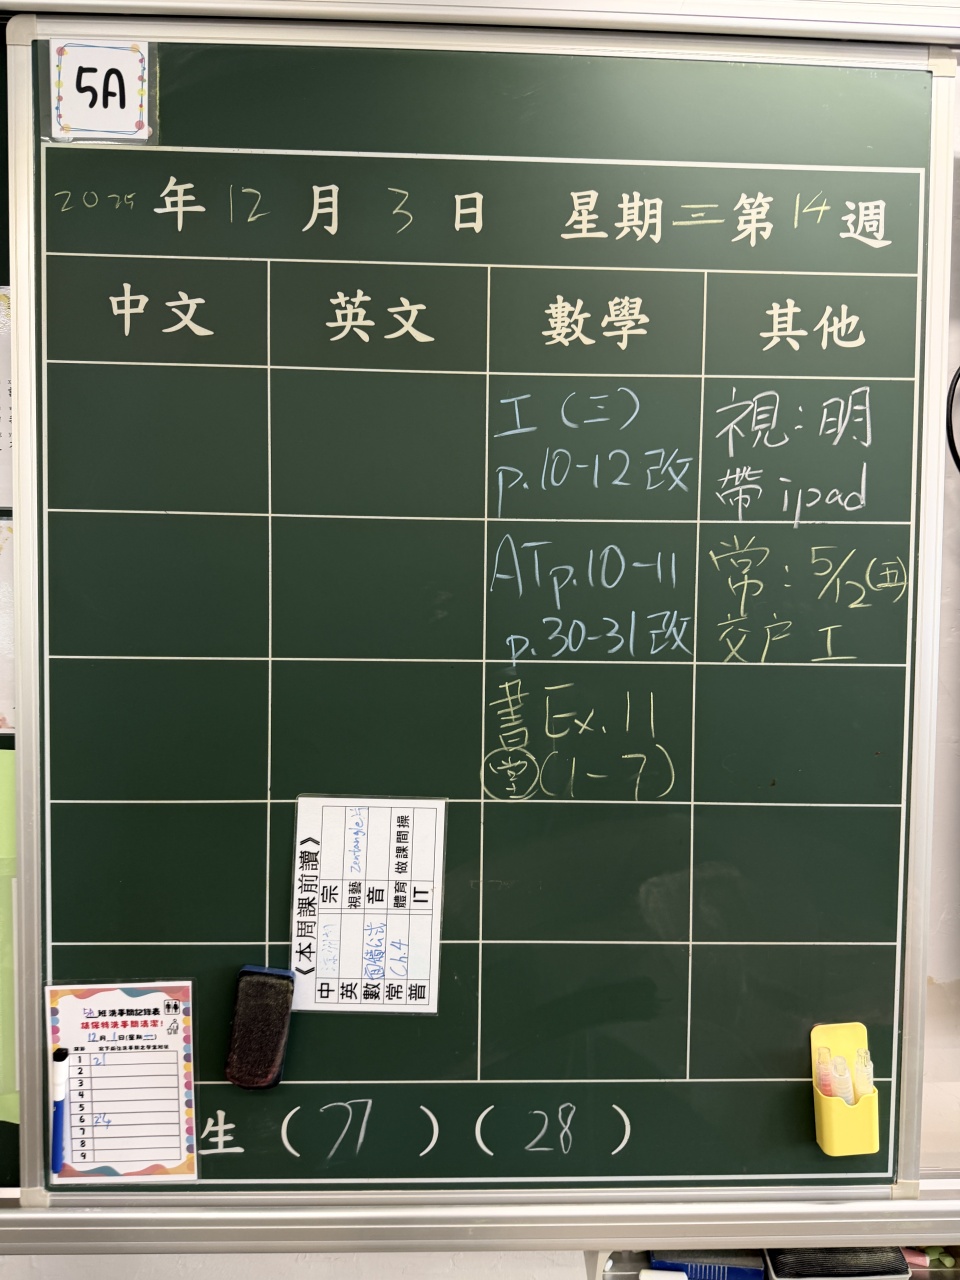 5A
2025年12月3日 星期三第14週
中文 英文 數學 其他
工(三)
p.10-12改
視:明
帶ipad
AT p.10-11
p.30-31改
常:5/12(五)
交戶工
書Ex.11
堂(1-7)
《本周課前讀》
中 宗
英 視藝 Zentangle
數 面積公式 音
常 Ch.4 體育 做課間操
普 IT
5A班洗手間記錄表
請保持洗手間清潔!
12月1日(星期一)
1 21
2
3
4
5
6 24
7
8
9
生(27)(28)